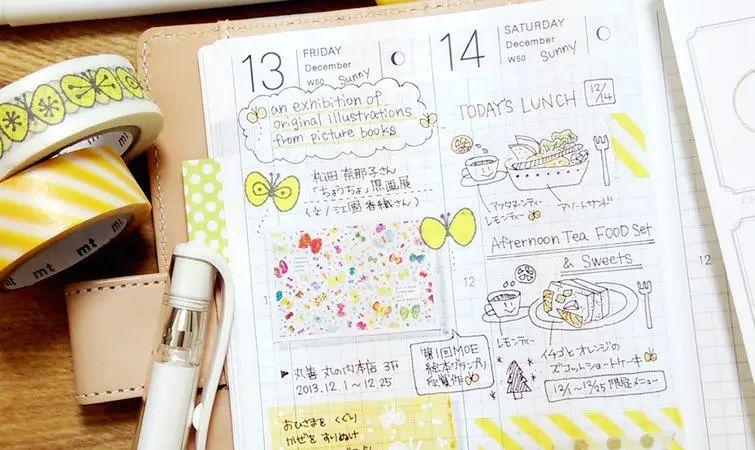 mt
13
FRIDAY
December
W50 Sunny
an exhibition of
original illustrations
from picture books
植田 奈那子さん
「ちょうちょ」原画展
(文/江國香織さん)
12
▶ 丸善 丸の内本店 3F
2013.12.1~12.25
第1回MOE
絵本グランプリ
受賞作
おひさまを くぐり
かぜを すりぬけ
14
SATURDAY
December
W50 Sunny
TODAY'S LUNCH 12/14
レモンティー
アソートサンド
Afternoon Tea FOOD Set
& Sweets
レモンティー
イチゴとオレンジの
ズコットショートケーキ
12/1~12/25 限定メニュー
12